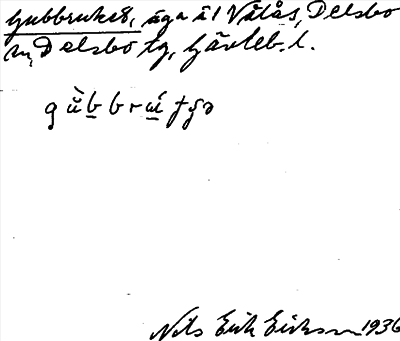 Gubbruket, äga äl Våtås, Delsbo
sn, Delsbo tg, Gävleb. l.
Nils Erik Eriksson 1936